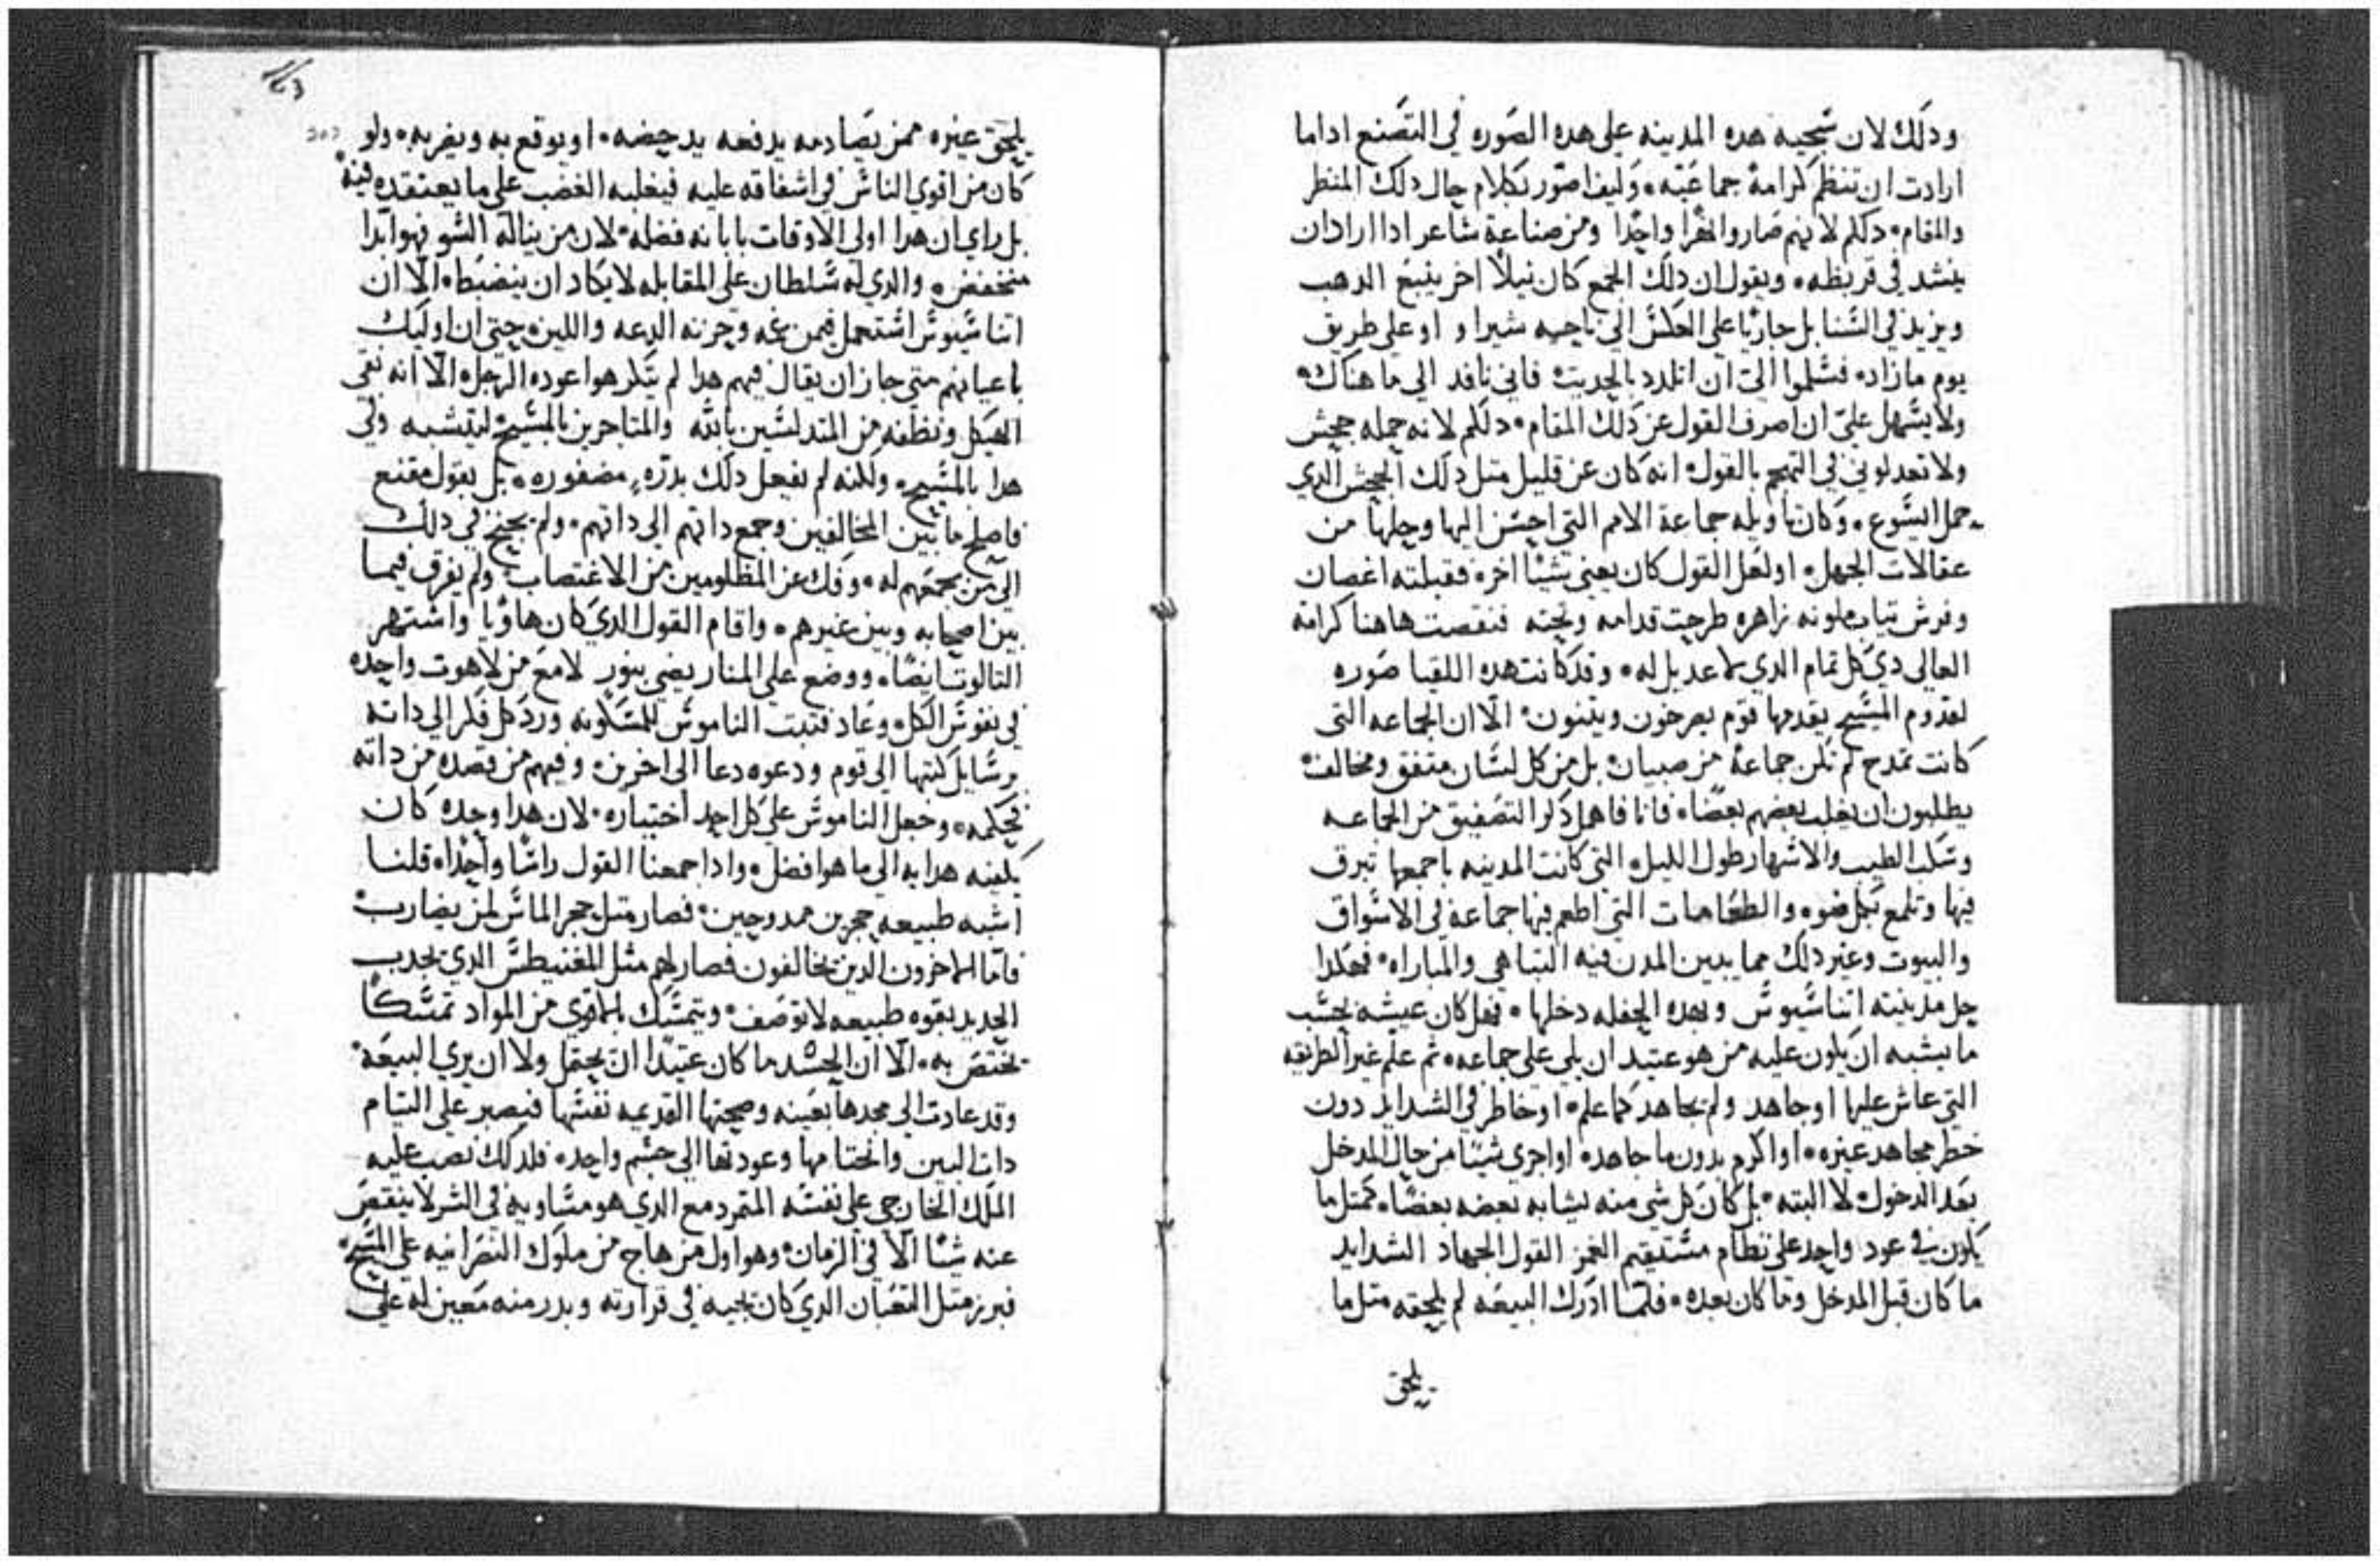 ودلك لان سجيه هده المدينه علي هده الصوره في التصنع اداما
ارادت ان تنظم كرامة جماعيه٠ وكيف اصور بكلام حال دلك المنظر
والمقام٠ دلكم لانهم صاروا نهرا واحدا ومن صناعة شاعر ادا اراد ان
ينشد في قريظه٠ ويقول ان دلك الجمع كان نيلا اخر ينبع الدهب
ويزيد في السنابل جاريا علي العكس الي ناحيه شيراو او علي طريق
يوم مازاد٠ فسلموا الي ان اتلدد بالحديث فاني نافد الي ما هناك٠
ولا يسهل علي ان اصرف القول عن دلك المقام٠ دلكم لانه حمله جحيش
ولا تعدلوني في التهجم بالقول٠ انه كان عن قليل متل دلك الجحيش الدي
حمل ايسوع٠ وكان تاويله جماعة الامم التي احسن اليها وحلها من
عقالات الجهل٠ او لعل القول كان يعني شيا اخر٠ فقبلته اغصان
وفرش تياب ملونه زاهره طرحت قدامه وتحته فنقصت هاهنا كرامة
العالي دي كل تمام الدي لا عديل له٠ وقد كانت هده اللقيا صوره
لقدوم المسيح يقدمها قوم يصرخون ويتنون٠ الا ان الجماعه التي
كانت تمدح لم تكن جماعة من صبيان٠ بل من كل لسان متفق ومخالف
يطلبون ان يغلب بعضهم بعضا٠ فانا فاهمل دكر التصفيق من الجماعه
وسكب الطيب والاشهار طول الليل٠ التي كانت المدينه باجمعها تبرق
فيها وتلمع بكل ضوء والطعامات التي اطعم فيها جماعة في الاسواق
والبيوت وغير دلك مما يدين المدن فيه التباهي والمباراه٠ فهكدا
حل مدينته اتناسيوس وبهده الحفله دخلها٠ فهل كان عيشه بحسب
ما يشبه ان يكون عليه من هو عتيد ان يلي علي جماعه٠ تم علم غير الطريقه
التي عاش عليها اوجاهد ولم يجاهد كما علم٠ او خاطر في الشدايد دون
خطر مجاهد غيره٠ او اكرم بدون ما جاهد٠ او اجري شيا من حال المدخل
بعد الدخول٠ لا البته٠ بل كان كل شي منه يشابه بعضه بعضا٠ كمتل ما
يكون في عود واحد علي نظام مستقيم الغمز القول الجهاد الشدايد
ما كان قبل المدخل وما كان بعده٠ فلما ادرك البيعه لم يلحقه متل ما
يلحق
يلحق غيره ممن يصادمه يدفعه يدحضه٠ او يوقع به ويضربه٠ ولو
كان من اقوي الناس في اشفاقه عليه فيغلبه الغضب علي ما يعتقده فيه
بل راي ان هدا اولي الاوقات بابانه فضله٠ لان من يناله السو فهو ابدا
منخفض٠ والدي له سلطان علي المقابله لا يكاد ان ينضبط٠ الا ان
اتناسيوس استعمل فيمن غمه وحزنه الدعه واللين٠ حتي ان اوليك
باعيانهم متي جاز ان يقال فيهم هدا لم يتكرهوا عوده الرجل٠ الا انه نقي
الهيكل ونظفه من المتدلسين بالله والمتاجرين بالمسيح ليتشبه وفي
هدا بالمسيح٠ ولكنه لم يفعل دلك بدره مضفوره٠ بل بقول مقنع
فاصلح ما بين المخالفين وجمع داتهم الي داتهم٠ ولم يحتج في دلك
الي من يجمعهم له٠ وفك عن المظلومين من الاغتصاب٠ ولم يفرق فيما
بين اصحابه وبين غيرهم٠ واقام القول الدي كان هاويا واشتهر
التالوت ايضا٠ ووضع علي المنار يضي بنور لامع من لاهوت واحده
في نفوس الكل٠ وعاد فتبت الناموس للمسكونه ورد كل فكر الي داته
برسايل كتبها الي قوم ودعوه دعا الي اخرين٠ وفيهم من قصده من داته
تحكمه٠ وجعل الناموس علي كل احد اختياره٠ لان هدا وحده كان
يكفيه هدايه الي ما هو افضل٠ وادا جمعنا القول راسا واحدا٠ قلنا
اشبه طبيعه حجرين ممدوحين٠ فصار متل حجر الماس لمن يضارب
فاما الاخرون الدين يخالفون فصار لهم متل المغنيطس الدي يجدب
الحديد بقوه طبيعه لا توصف٠ ويتمسك بالاقوي من المواد تمسكا
تختص به٠ الا ان الحسد ما كان عتيدا ان يحتمل ولا ان يري البيعه٠
وقد عادت الي مجدها بعينه وصحتها القديمه نفسها فيصبر علي التيام
دات البين والختامها وعودتها الي جسم واحد٠ فلدلك نصب عليه
الملك الخارجي علي نفسه المتمرد مع الدي هو مساويه في الشر لا ينقص
عنه شيا الا في الزمان٠ وهو اول من هاج من ملوك النصرانيه علي المسيح٠
فبرز متل التعبان الدي كان يجيه في قرارته وبدر منه معين له علي